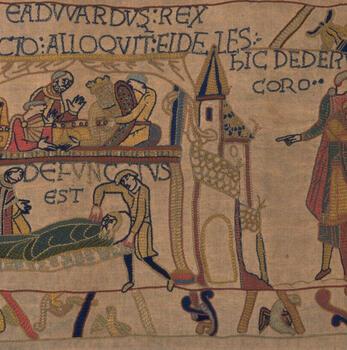 EADVVARDVS: REX
CTO: ALLOQVIT: FIDELES:
DEFVNCTVS
EST
hIC DEDER
CORO